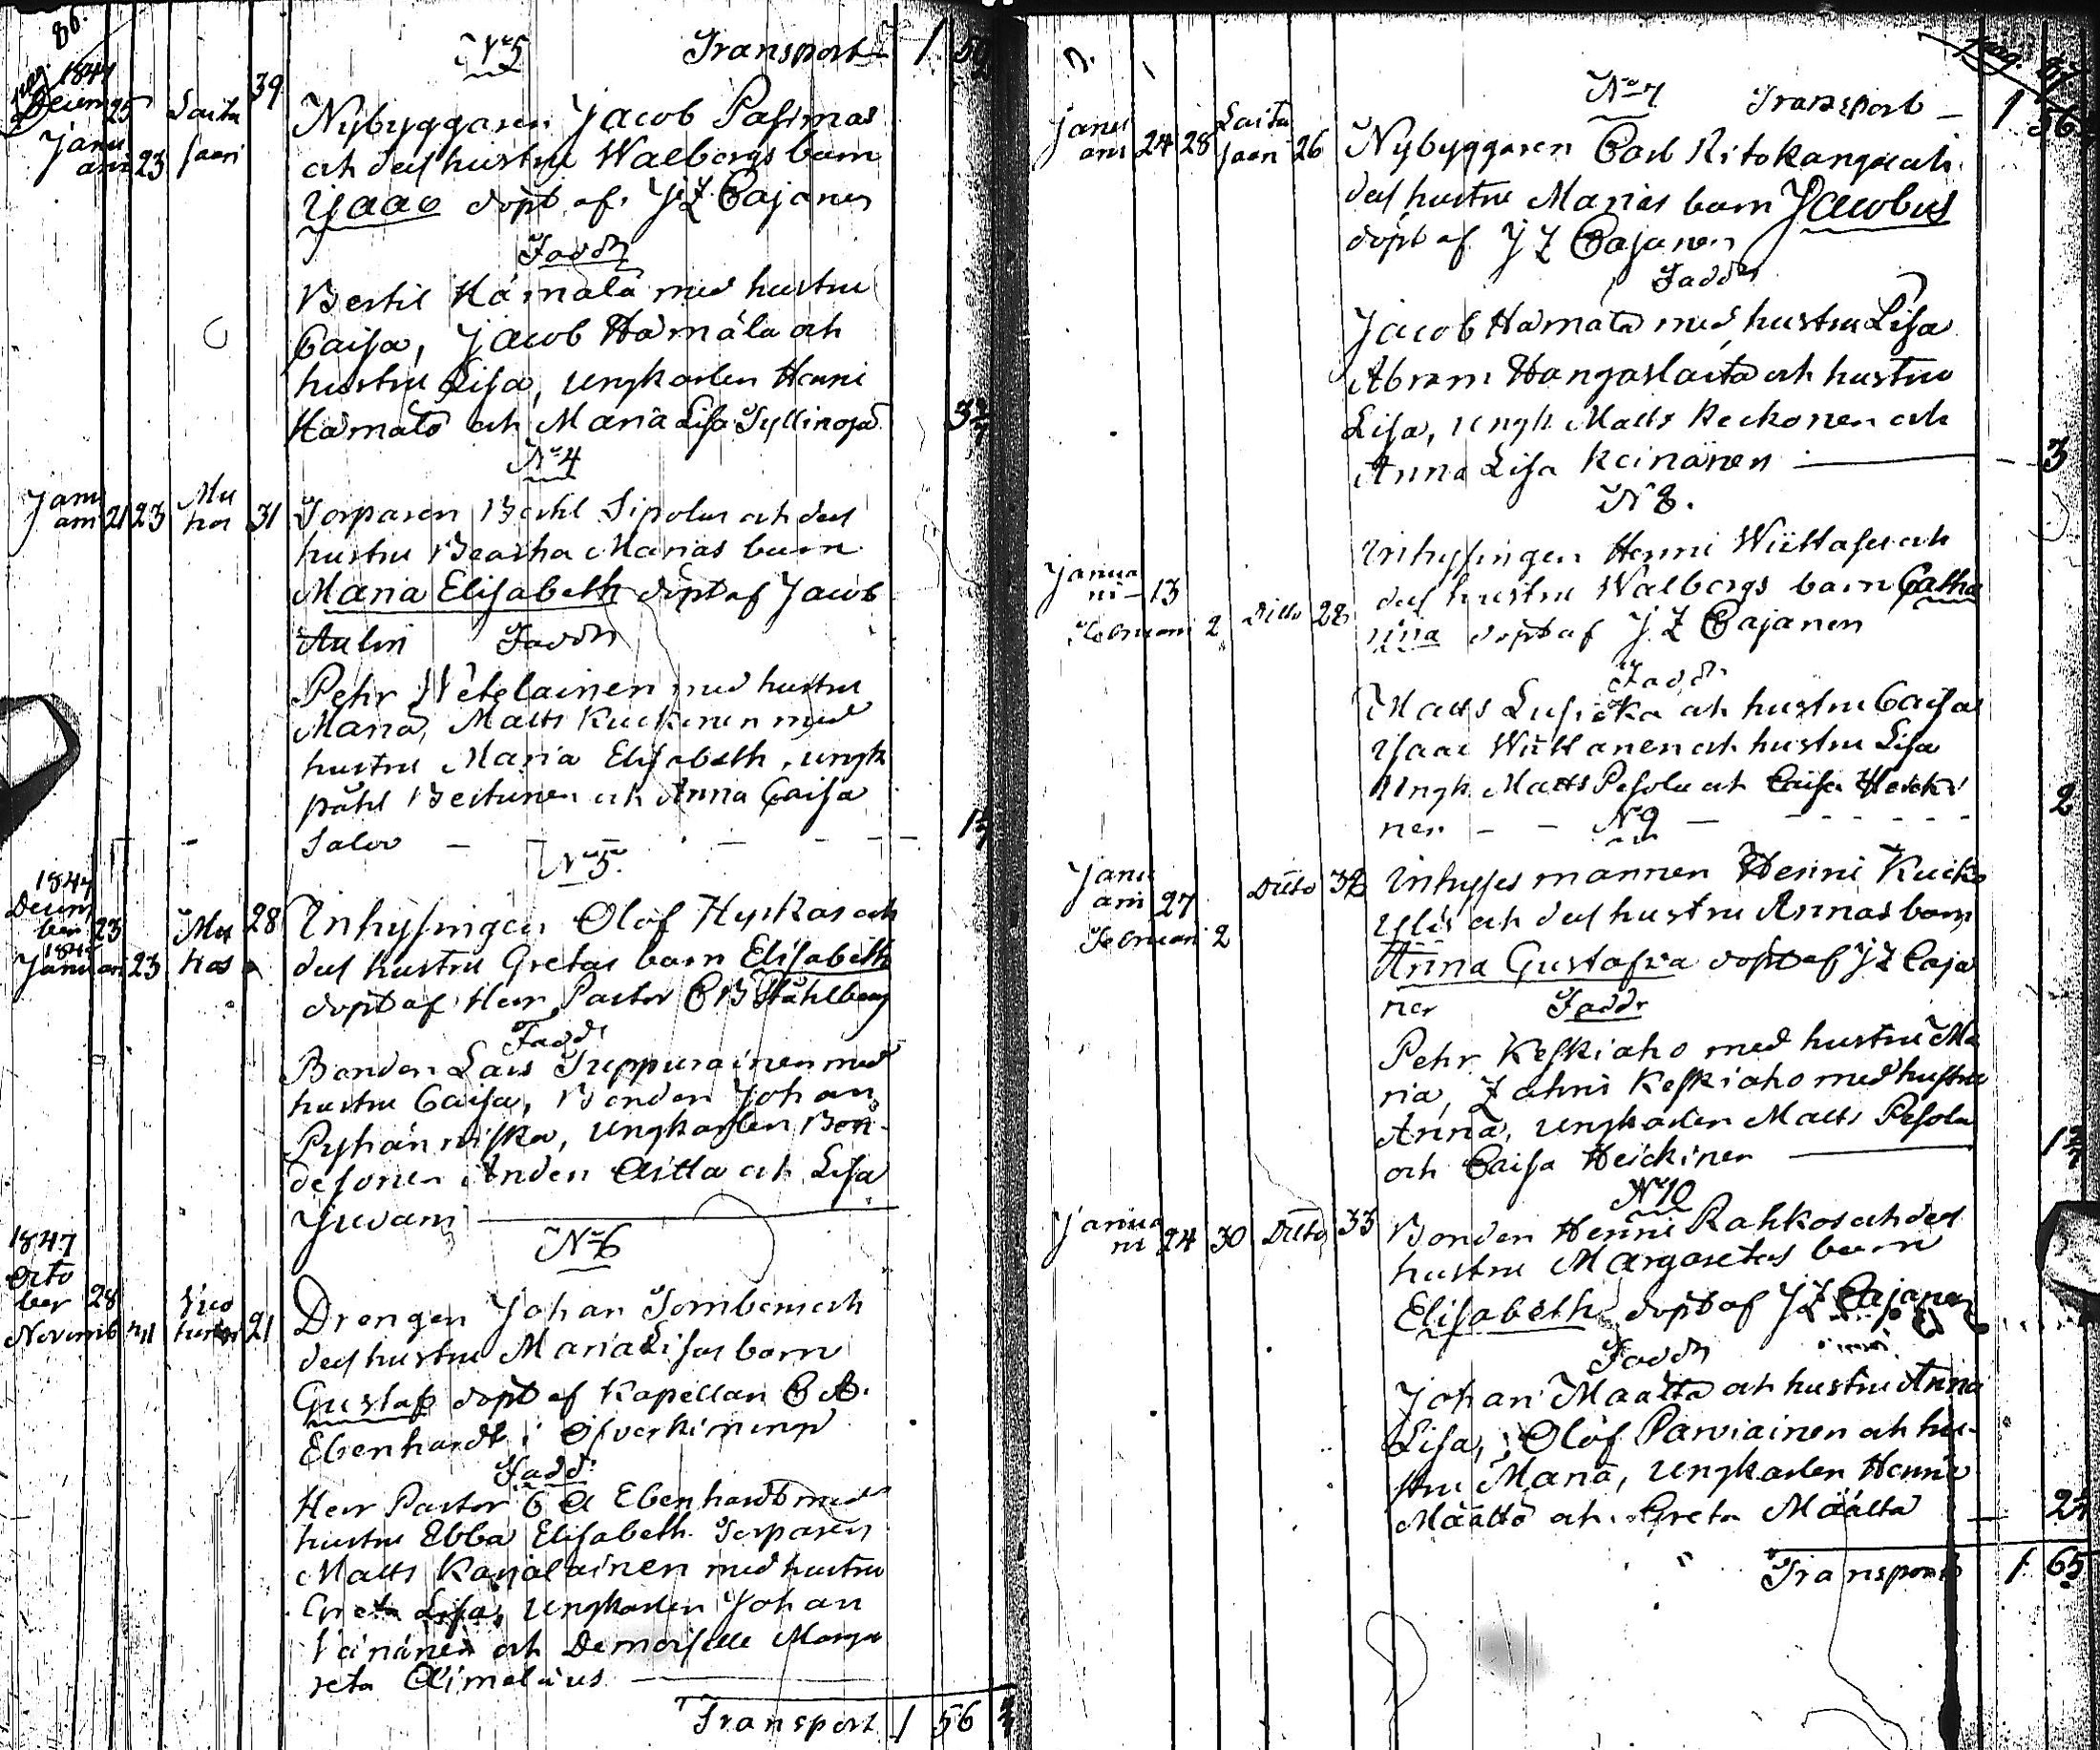 pag. 86.
No 5 Transport 1 50
1847
Decem 25 Laita 39
Janu
ari 23 saari
Nybyggaren Jacob Pasimas
och dess hustru Walborgs barn
Isaac döpt af J Z Cajanen
Fadd
Bertil Hämälä med hustru
Caisa, Jacob Hämälä och
hustru Lisa, ungkarlen Henric
Hämälä och Maria Lisa Tyllinoja
No 4
Janu
ari 21 23 Mu
hos 31
Torparen Bertil Sipolas och dess
hustru Beatha Marias barn
Maria Elisabeth döpt af Jacob
Aulin Fadd
Pehr Wetelainen med hustru
Maria, Matts Kuckonen med
hustru Maria Elisabeth, ungk
påhl Beitunen och Anna Caisa
Salov
No 5
1847
Decem
ber 23 Mu 28
1848
Januari 23 hos
Inhysingen Olof Hyrkas och
dess hustru Gretas barn Elisabeth
döpt af Herr Pastor C B Ståhlberg
Fadd
Bonden Lars Treppurainen med
hustru Caisa, Bonden Johan
Pyhänniska, Ungkarlen Bon-
desonen Anders Aitta och Lisa
Juvani
No 6
1847
Octo
ber 28
Novemb 21
Drengen Johan Tornbom och
dess hustru Maria Lisas barn
Gustaf döpt af Kapellan C A
Ebenhardt i Öfverkiminge
Fadd:
Herr Pastor C A Ebenhardt med
hustru Ebba Elisabeth. Torparen
Matts Karjalainen med hustru
Greta Lisa, Ungkarlen Johan
Väinänen och Demoiselle Marga
reta Aimelæus
Transport 1 56
pag. 87
No 7 Transport 1 56
Janu
ari 24 28 Laita
saari 26
Nybyggaren Carl Ritokangas och
dess hustru Marias barn Jacobus
döpt af J Z Cajanen
Fadd
Jacob Hämälä med hustru Lisa
Abram Hangaslaita och hustru
Lisa, ungk Matts Keckonen och
Anna Lisa Keinänen 3
N 8.
Inhysingen Henric Wiittases och
Janua
ri 13
dess hustru Walborgs barn Catha
Februari 2 Ditto 28
rina döpt af J Z Cajanen
Fadd
Matts och hustru Caisa
Isaac Wiittanen och hustru Lisa
Ungk Matts Pesola och Caisa Heicki
nen 2
No 9
Janu
ari 27 Ditto
Februari 2
Inhyses mannen Henric Kuicka
och dess hustru Annas barn
Anna Gustafva döpt af J Z Caja
nen Faddr
Pehr Keskiaho med hustru Ma
ria, Zahris Keskiaho med hustru
Anna, Ungkarlen Matts Pesola
och Caisa Heickinen
No 10
Janua
ri 24 30 Ditto 33
Bonden Henric Rahkos och dess
hustru Margaretas barn
Elisabeth döpt af J Z Cajanen
Fadd
Johan Määttä och hustru Anna
Lisa, Olof Parviainen och hu-
stru Maria, Ungkarlen Henric
Määttä och Greta Määttä
Transport 1 65